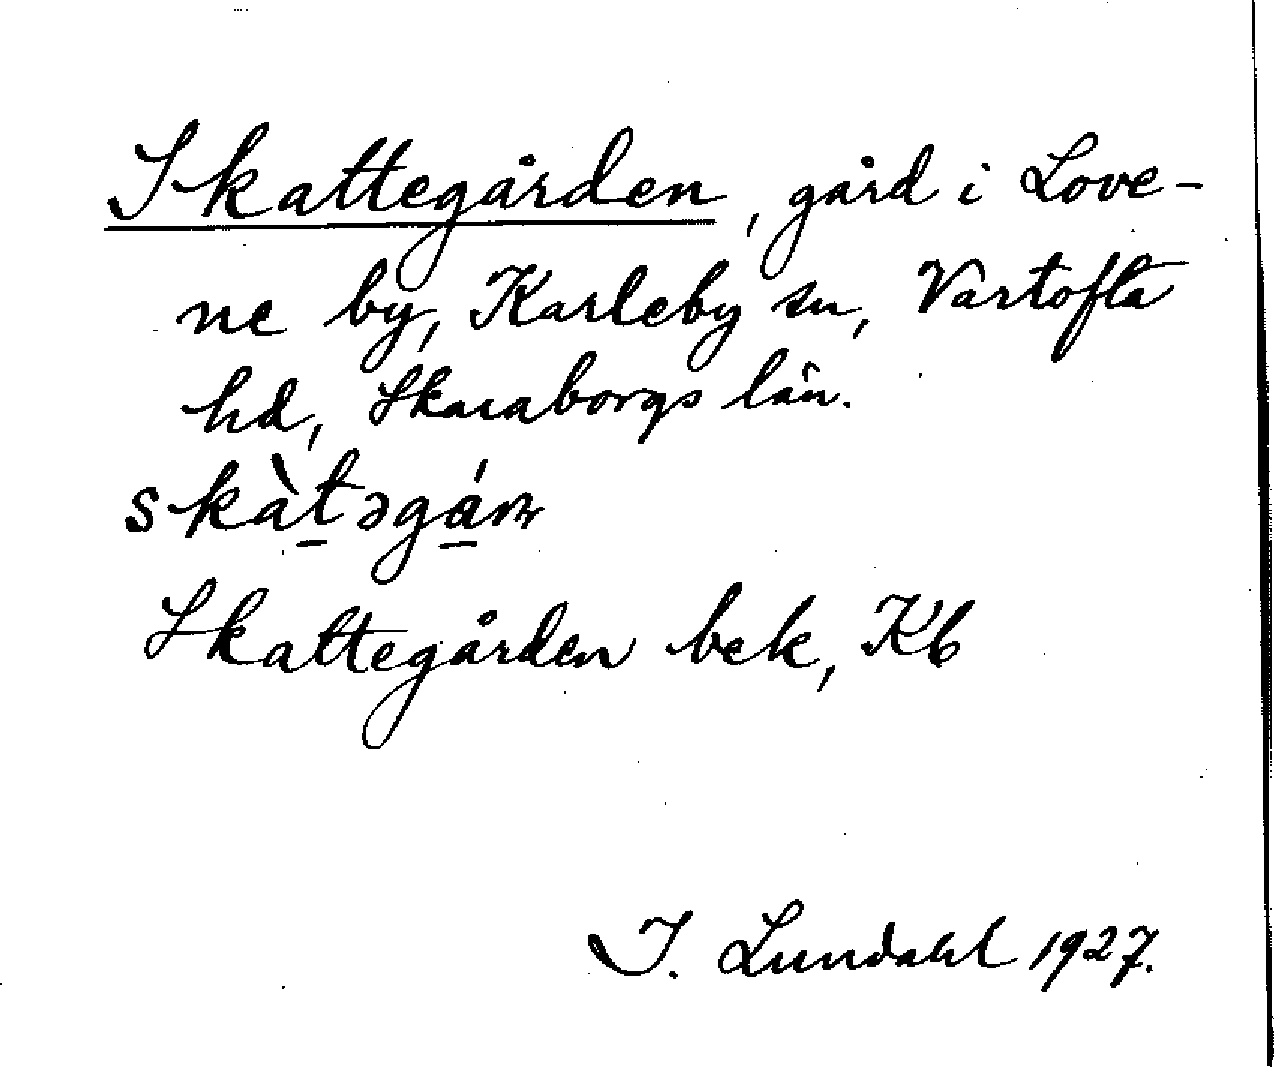 Skattegården, gård i Love-
ne by, Karleby sn, Vartofta
hd, Skaraborgs län.
skàt̲əgá̲ɳ
Skattegården bek, Kb
I. Lundahl 1927.